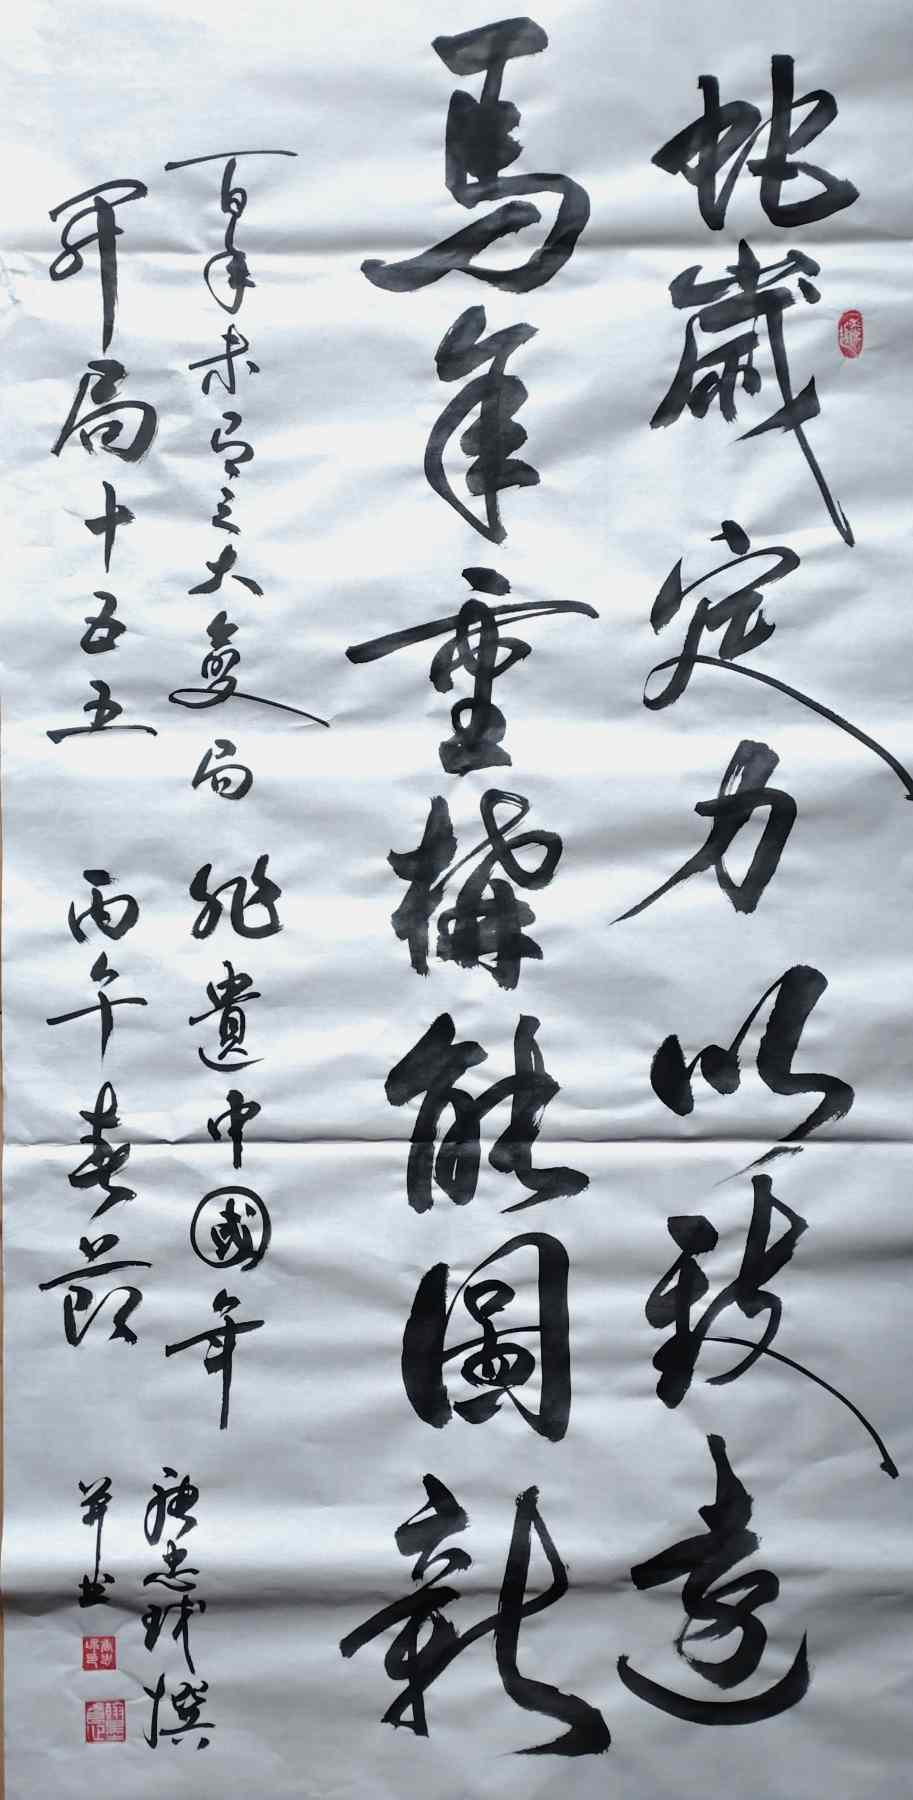 蛇歲定力以致遠
馬年重構能圖新
百年未有之大變局 非遺中國年
開局十五五 丙午春節
忠球撰
并书